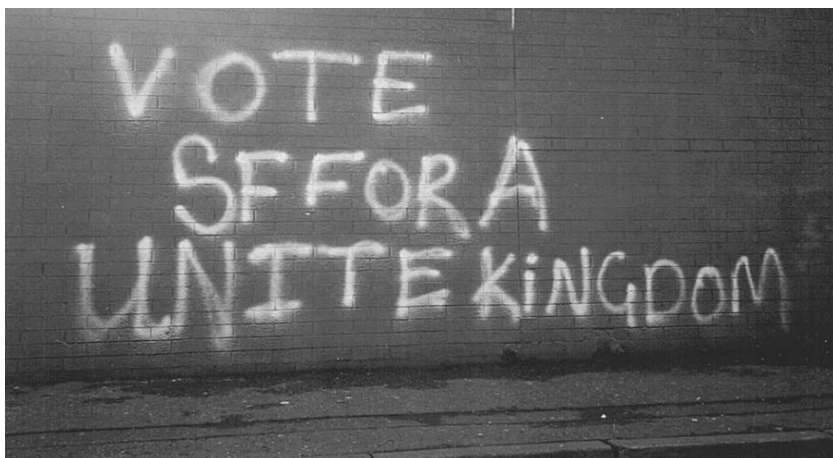 VOTE
SF FOR A
UNITE KiNGDOM